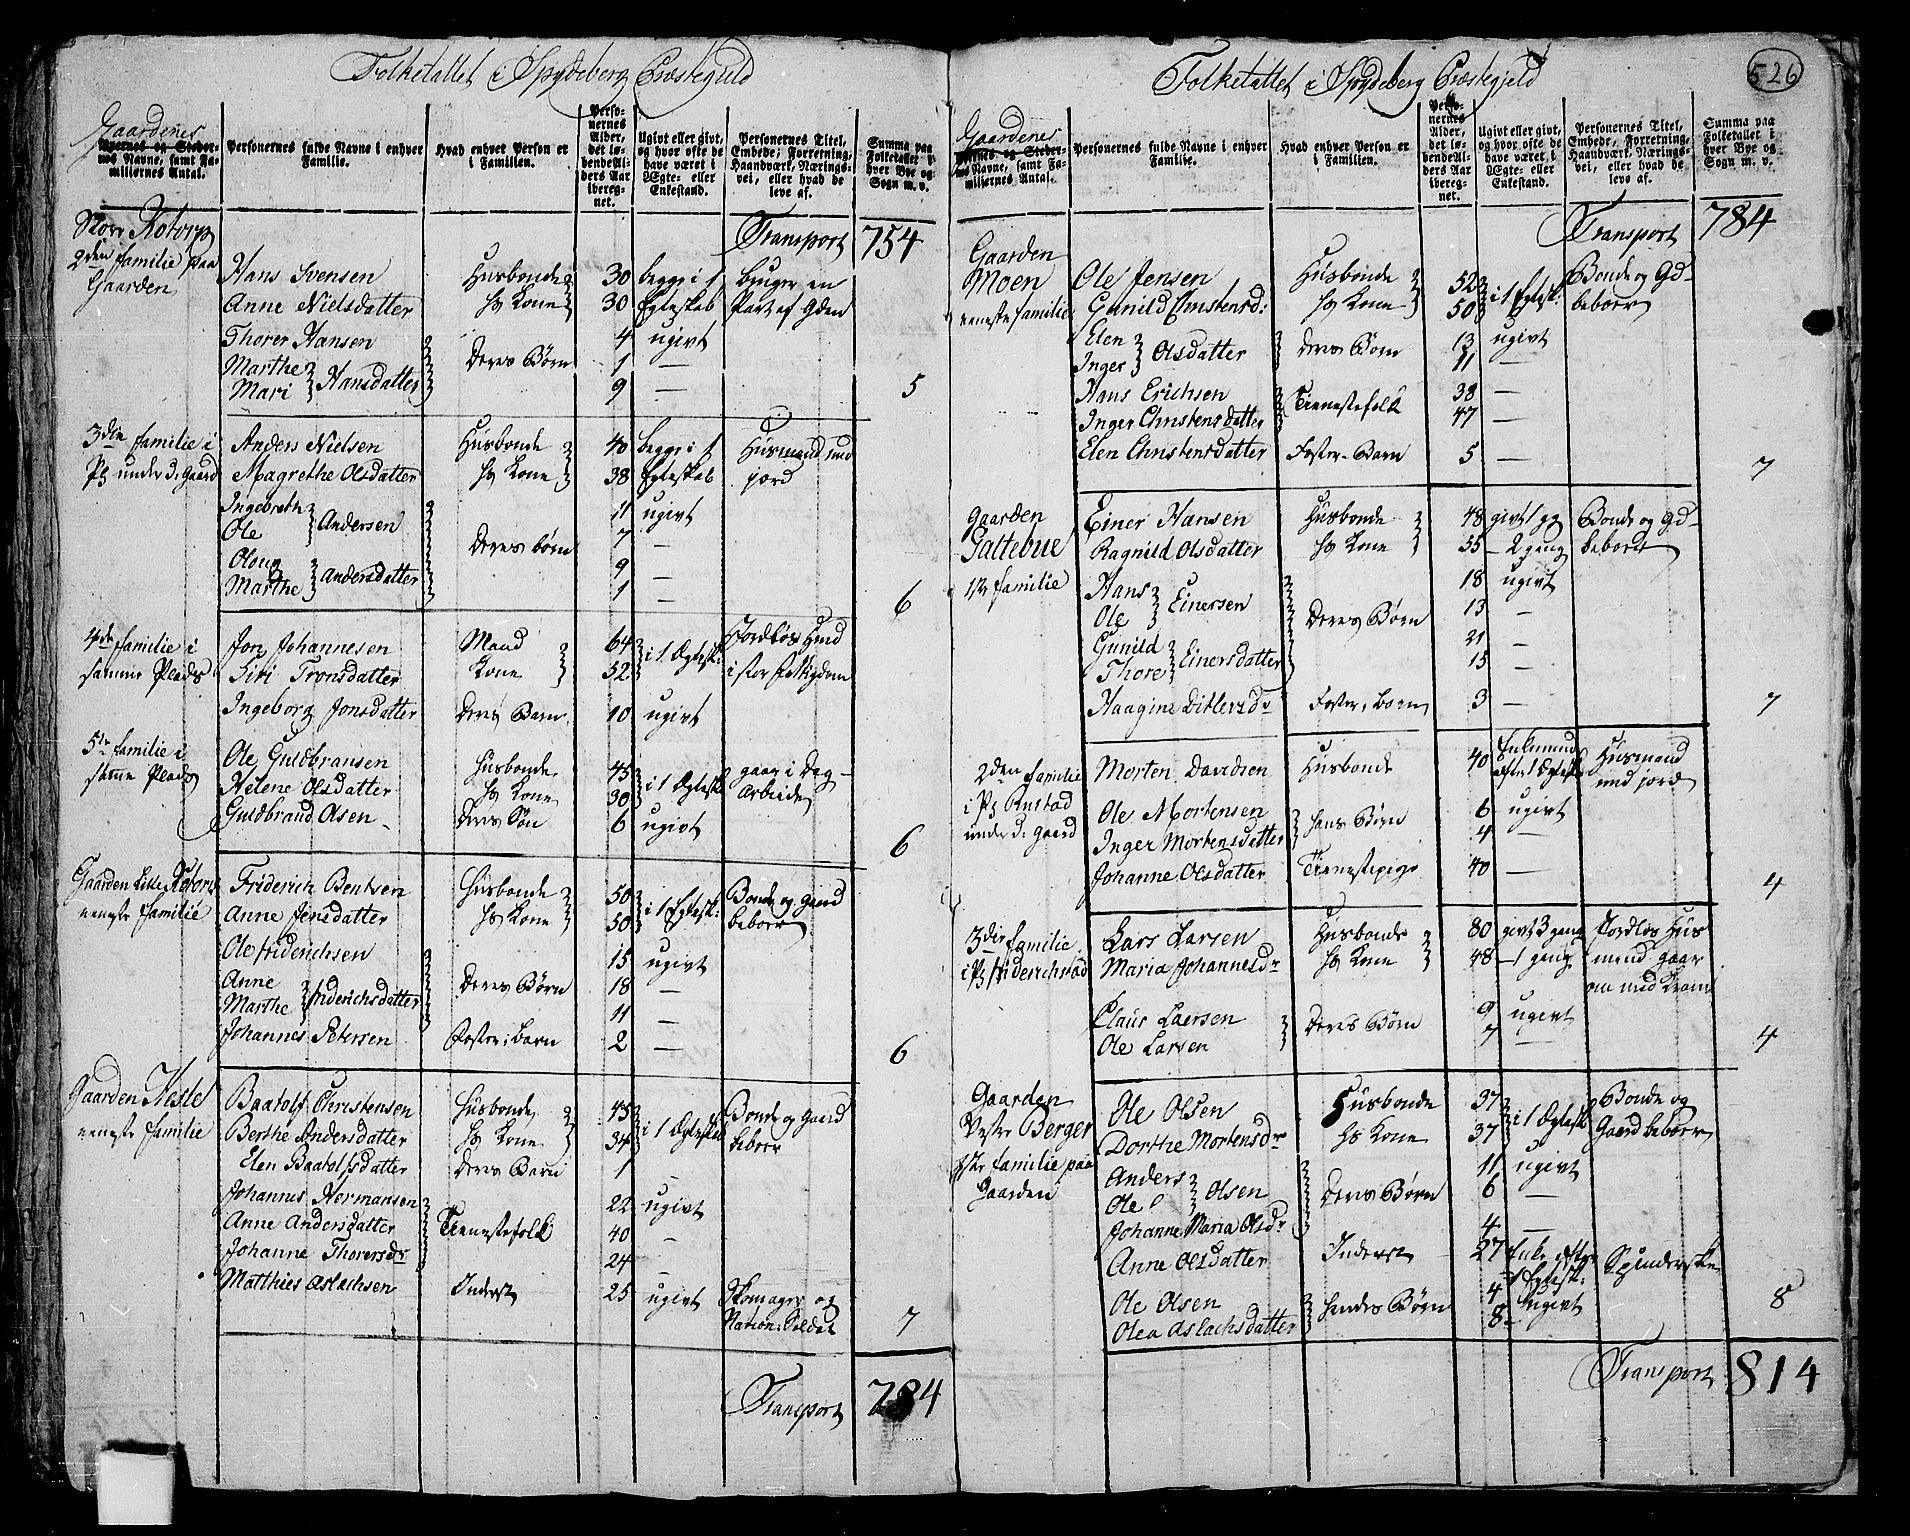 Folketallet i Spydeberg Præstegield
Gaardenes
Byernes og Stedernes Navne, samt Familiernes Antal.
Personernes fulde Navne i enhver Familie.
Hvad enhver Person er i Familien.
Personernes Alder, det løbende Alders Aar iberegnet.
Ugivt eller givt, og hvor ofte de have været i Ægte- eller Enkestand.
Personernes Titel, Embede, Forretning, Haandværk, Næringsvei, eller hvad de leve af.
Summa paa Folketallet i hver Bye og Sogn m. v.
Transport 754
Norr Kotorp
2den familie paa Gaarden
Hans Svensen Husbonde 30 begge i 1 bruger en
Anne Nielsdatter hs Kone 30 Egteskab Part af Gden
Thorer Hansen 4 ugivt
Marthe 1 —
Mari Hansdatter Deres Børn 9 —
5
3die familie i Pl under d: Gaard
Anders Nielsen Husbonde 40 begge i 1 Husmand med
Magrethe Olsdatter hs Kone 38 Egteskab jord
Ingebreth 11 ugivt
Ole Andersen 7 —
Oloug Deres børn 9
Marthe Andersdatter 1 —
6
4de familie i samme Plads
Jon Johannesen Mand 64 i 1 Ægtesk:
Siri Tronsdatter Kone 52
Ingeborg Jonsdatter Deres Barn 10 ugivt
5te familie i samme Plads
Ole Guldbransen Husbonde 45 i 1 Ægtesk gaar i Dag-
Helene Olsdatter hs Kone 30 Arbeide
Guldbrand Olsen Deres Søn 6 ugivt
6
Gaarden Lille Kotorp
eeneste familie
Friderich Bentsen Husbonde 50 i 1 Egtesk: Bonde og Gaard
Anne Jensdatter hs Kone 50 beboer
Ole Friderichsen 15 ugivt
Anne 18 —
Marthe Friderichsdatter Deres Børn 11 —
Johannes Petersen Foster: barn 2 —
6
Gaarden Nesle
eeneste familie
Baatolf Christensen Husbonde 45 i 1 Ægteskab Bonde og Gaard
Berthe Andersdatter hs Kone 34 beboer
Elen Baatolfsdatter Deres Barn 1 —
Johannes Hermansen 22 ugivt
Anne Andersdatter Tienestefolk 40 —
Johanne Thorersdr 24
Matthies Aslachsen Inderst 25 ugivt Skomager og
Nation: Soldat
7
Transport 784
526
Folketallet i Spydeberg Præstegield
Gaardenes
Byernes og Stedernes Navne, samt Familiernes Antal.
Personernes fulde Navne i enhver Familie.
Hvad enhver Person er i Familien.
Personernes Alder, det løbende Alders Aar iberegnet.
Ugivt eller givt, og hvor ofte de have været i Ægte- eller Enkestand.
Personernes Titel, Embede, Forretning, Haandværk, Næringsvei, eller hvad de leve af.
Summa paa Folketallet i hver Bye og Sogn m. v.
Transport 784
Gaarden Moen
eeneste familie
Ole Jensen Husbonde 52 i 1 Egtesk: Bonde og Gd-
Gunild Christensd: hs Kone 50 beboer
Elen 13 ugivt
Inger Olsdatter deres Børn 11 —
Hans Erichsen Tienestefolk 38 —
Inger Christensdatter 47 —
Elen Christensdatter Foster-Barn 5 —
7
Gaarden Galtebue
1te familie
Einer Hansen Husbonde 48 givt 1 gg Bonde og Gd-
Ragnild Olsdatter hs Kone 55 — 2 gang beboer
Hans 18 ugivt
Ole Einersen 13 —
Gunild Deres Børn 21 —
Thore Einersdatter 15 —
Haagine Ditlersdr Foster: barn 3 —
7
2den familie i Pl Rustad under d: Gaard
Morten Davidsen Husbonde 40 Enkemand efter 1 Ægtesk Husmand med jord
Ole Mortensen 6 ugivt
Inger Mortensdatter hans Børn 4 —
Johanne Olsdatter Tienestepige 40 —
4
3die familie i Pl Friderichstad
Lars Larsen Husbonde 80 givt 3 gang Jordløs Hus
Maria Johannesdr hs Kone 48 — 1 gang mand gaar
om med Kram
Claus Laersen Deres Børn 9 ugivt
Ole Larsen 7 —
4
Gaarden Vestre Berger
1ste familie paa Gaarden
Ole Olsen Husbonde 37 i 1 Ægtesk Bonde og
Dorthe Mortensdr hs Kone 37 Gaard beboer
Anders 11 ugivt
Ole Olsen Deres Børn 6 —
Johanne Maria Olsdr 4 —
Anne Olsdatter Inderst 27 Enke efter 1 Egtesk: Spinderske
Ole Olsen hendes Børn 4 ugivt
Olea Aslachsdatter 8
8
Transport 814